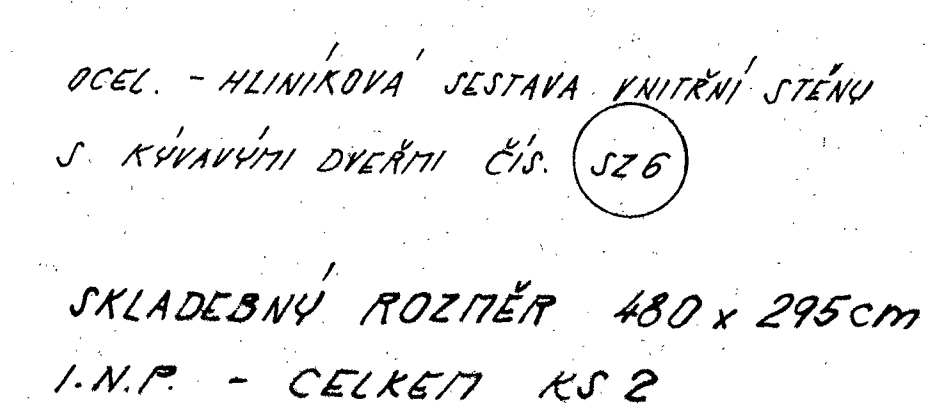 OCEL. - HLINÍKOVÁ SESTAVA VNITŘNÍ STĚNY
S KÝVAVÝMI DVEŘMI ČÍS. SZ6
SKLADEBNÝ ROZMĚR 480 x 295cm
I.N.P. - CELKEM KS 2